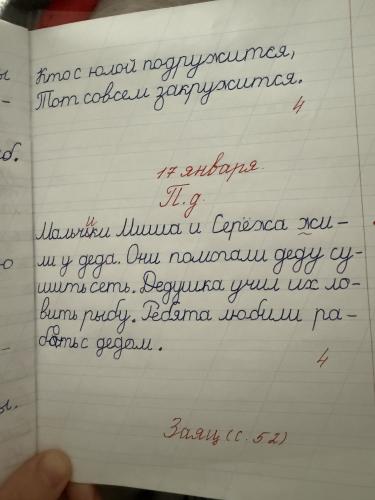 Кто с юлой подружится,
Тот совсем закружится.
4
17 января.
П.д.
Мальчики Миша и Серёжа жи-
ли у деда. Они помогали деду су-
шить сеть. Дедушка учил их ло-
вить рыбу. Ребята любили ра-
с дедом.
4
Заяц (с. 52)